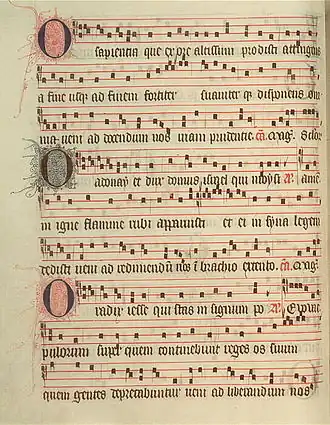 O sapientia que ex ore altissimi prodisti attingens
a fine usqꝫ ad finem fortiter suauiter qꝫ disponens om
nia ueni ad docendum nos uiam prudentie
O adonay et dux domus israel qui moysi
in igne flamme rubi apparuisti et ei in syna legem
dedisti ueni ad redimendū nos ī brachio extento.
O radix iesse qui stas in signum po
pulorum super quem continebunt reges os suum
quem gentes deprecabuntur ueni ad liberandum nos